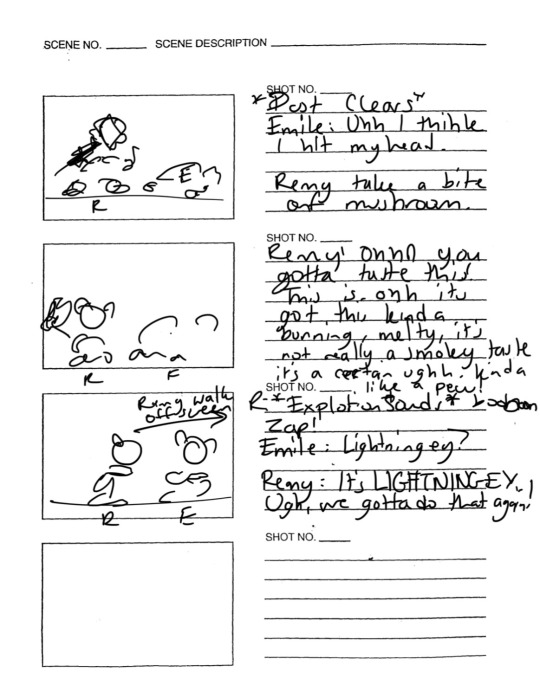 SCENE NO. SCENE DESCRIPTION
SHOT NO.
*Dust Clears*
Emile: Uhh I think
I hit my head.
Remy take a bite
of mushroom.
E
R
SHOT NO.
Remy: Ohhh you
gotta taste this!
This is.. ohh it's
got this kinda
burning, melty, it's
not really a smokey taste
it's a certan ughh. kinda
R
E
SHOT NO.
like a pew!
Remy walks
off screen
R-*Explotion Sands*
Zap!
Emile: Lightningey?
Remy: It's LIGHTNINGEY.
Ugh, we gotta do that again!
R
E
SHOT NO.